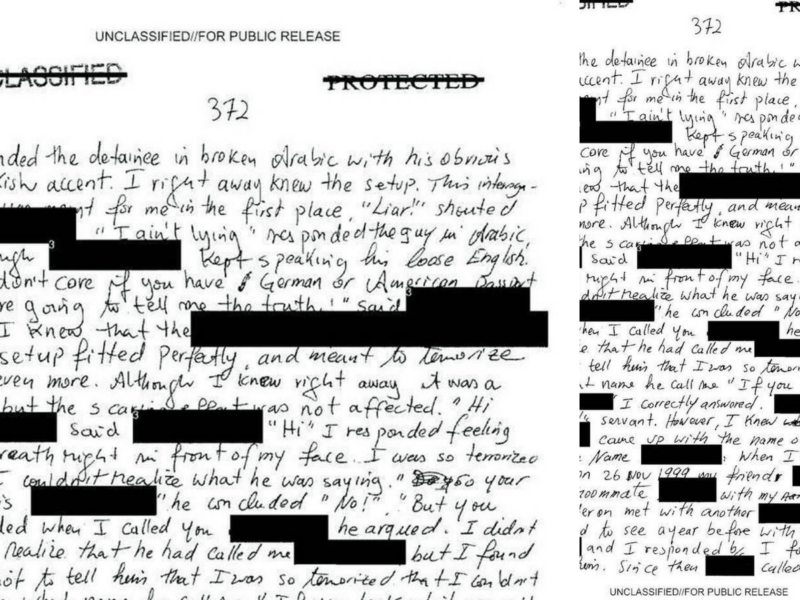 UNCLASSIFIED//FOR PUBLIC RELEASE
CLASSIFIED
PROTECTED
372
nded the detainee in broken Arabic with his obvious
ish accent. I right away knew the setup. This interog-
for me in the first place, "Liar!" shouted
"I ain't lying" responded the guy in Arabic,
Kept speaking his loose English.
don't care if you have German or American Passport
re going to tell me the truth!" Said
I knew that the
setup fitted Perfectly, and meant to terrorize
even more. Although I knew right away it was a
but the scary effect was not affected. "Hi
Said "Hi" I responded feeling
reath right in front of my face. I was so terrorized
I couldn't realize what he was saying. " So your
is "he concluded "No!", "But you
ded when I called you he argued. I didn't
realize that he had called me but I found
not to tell him that I was so terrorized that I couldn't
372
the detainee in broken Arabic w
accent. I right away knew the
for me in the first place,
"I ain't lying" responded
Kept speaking
care if you have German or
ing to tell me the truth!"
ew that the
p fitted Perfectly, and mean
more. Although I knew right
he scary was not a
Said "Hi" I r
right in front of my face.
didn't realize what he was say
"he concluded "No
hen I called you he
e that he had called me
tell him that I was so terror
t name he call me "If you
I correctly answered.
servant. However, I knew
came up with the name o
Name when I
on 26 Nov 1999 my friend
roommate with my
er on met with another
d to see a year before with
and I responded by I fo
him. Since then called
UNCLASSIFIED//FOR PUBLIC RELEASE